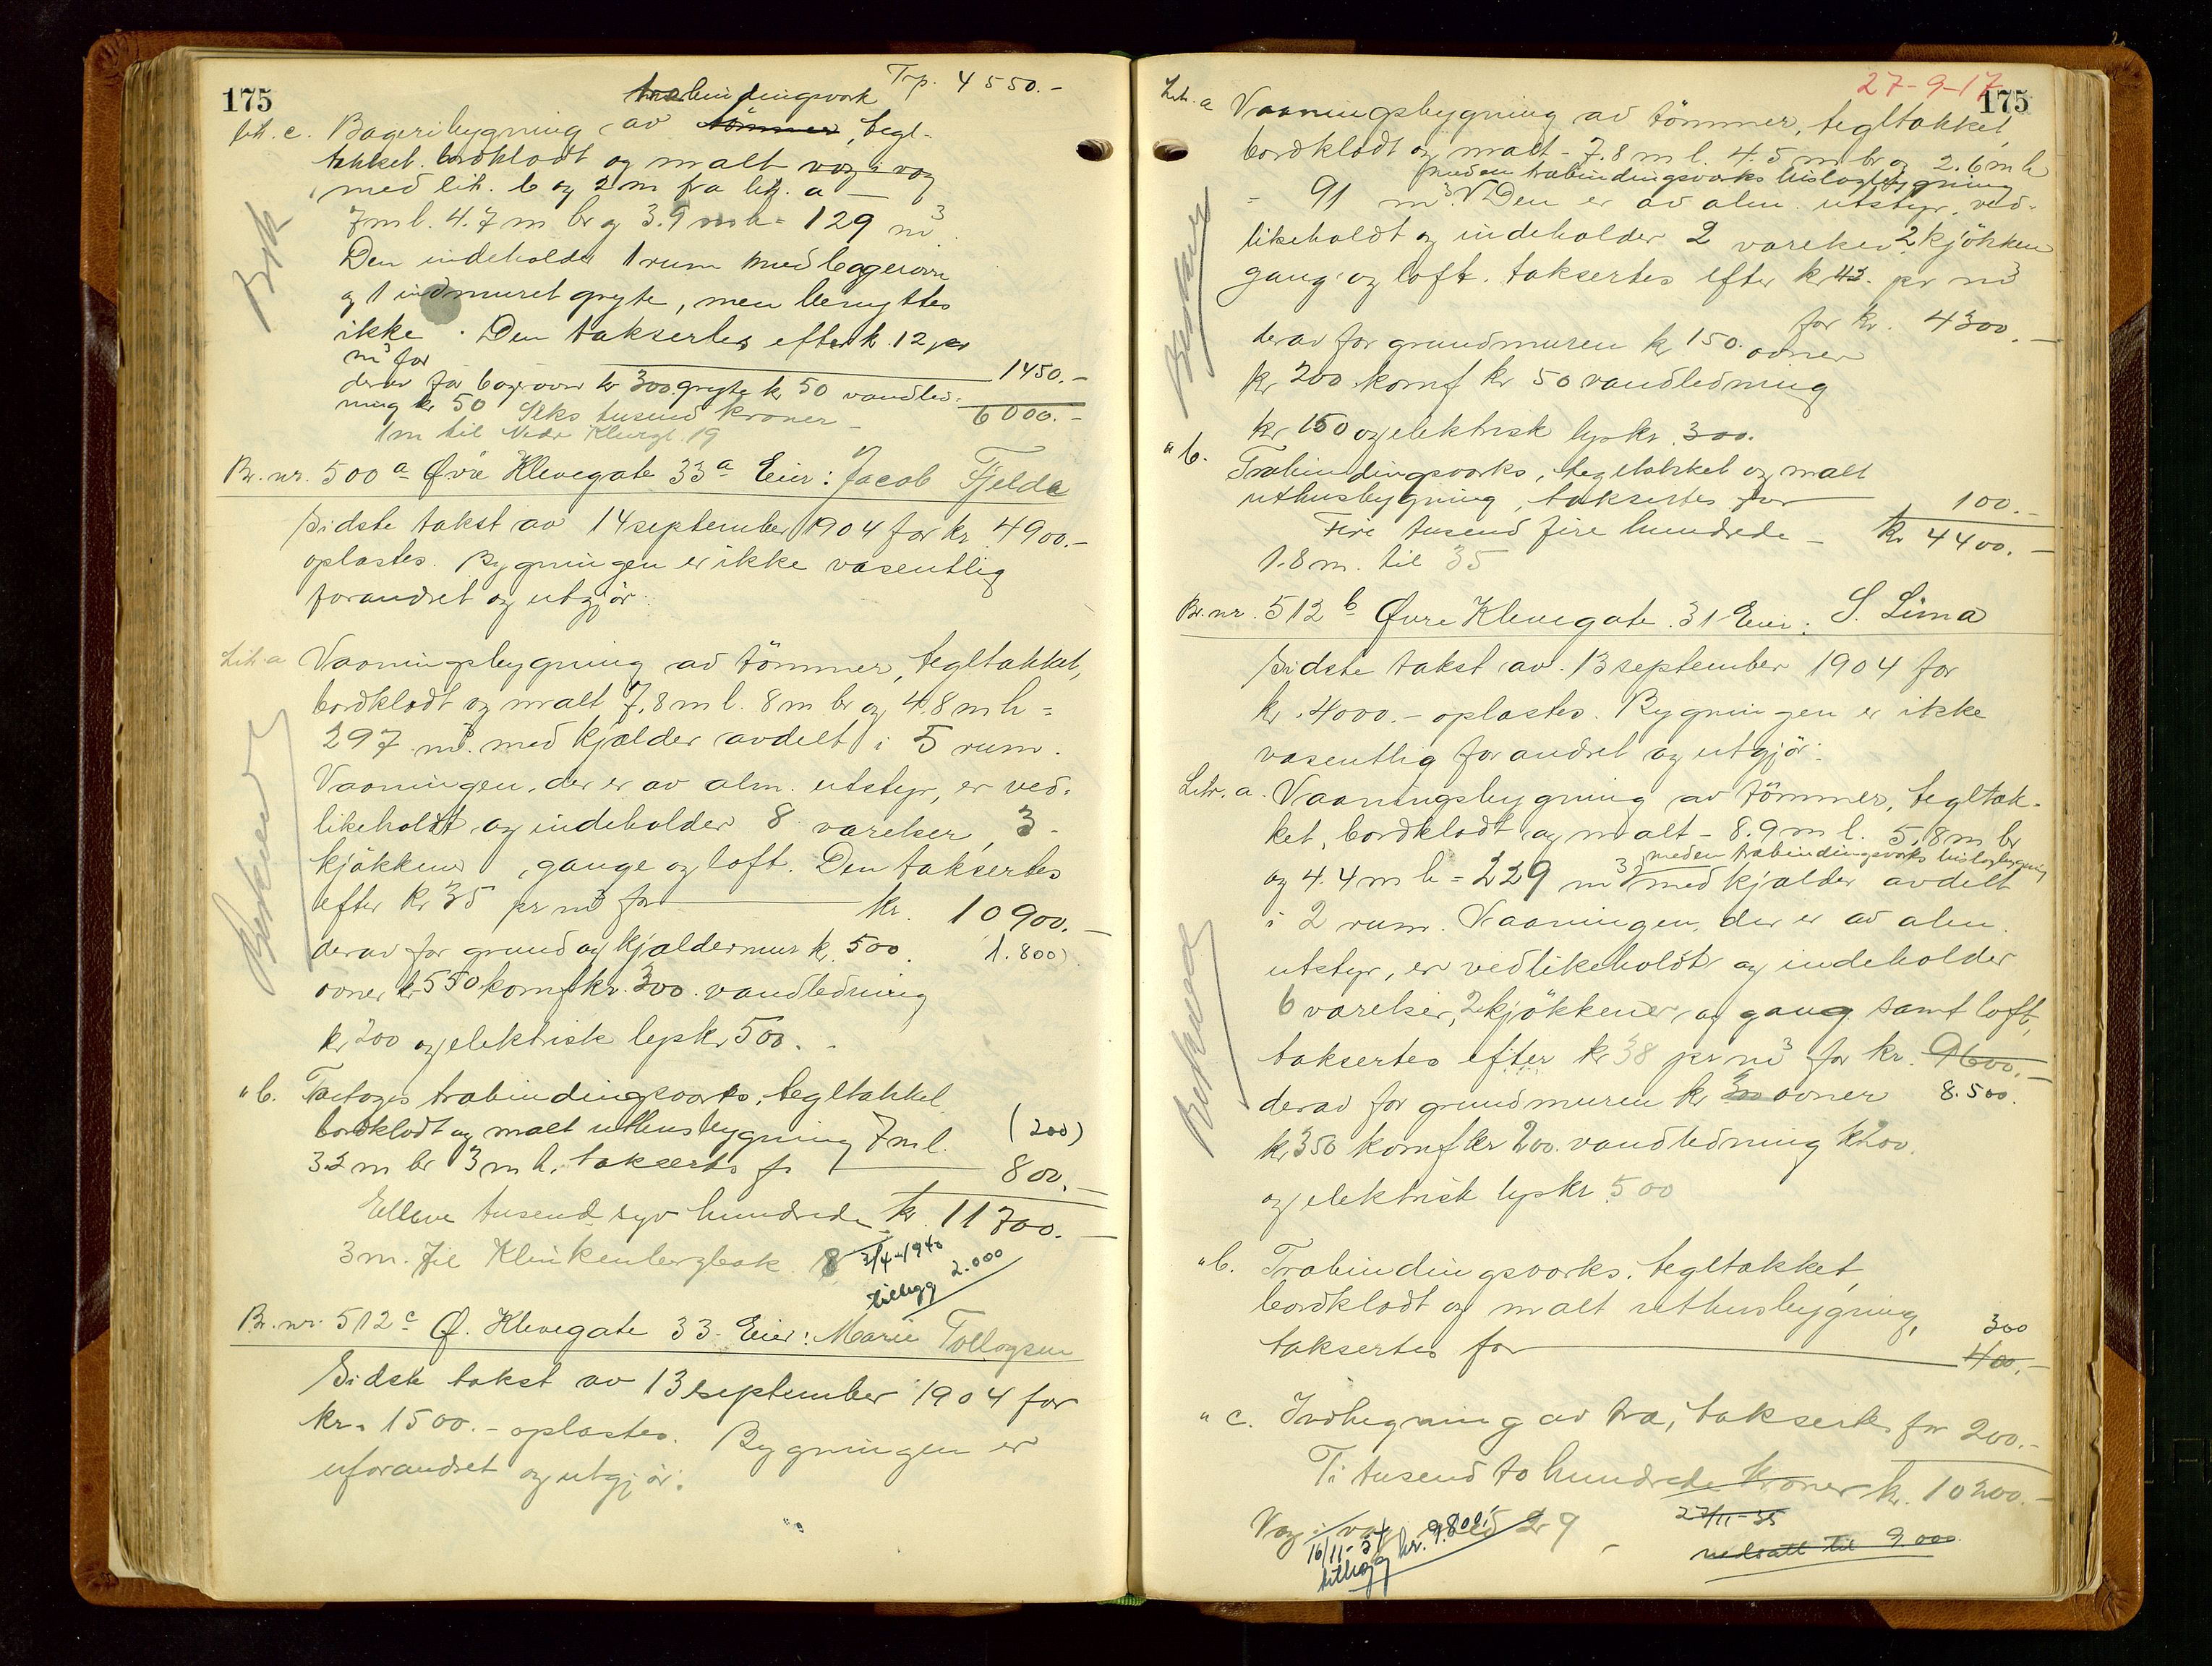 175
Trp. 4550.-
træbindingsverk
Lit. c. Bageribygning av tömmer, tegl-
tækket, bordklædt og malt væg i væg
med lit. b og 2 m fra lit. a -
7 m l. 4.7 m br og 3.9 m h = 129 m³.
Den indeholder 1 rum med bagerovn
og 1 indmuret gryte, men benyttes
ikke. Den taksertes efter kr. 12 pr
m³ for 1450.-
derav for bagerovn kr 300 gryte kr 50 vandled-
ning kr 50 Seks tusend kroner - 6000.-
1 m til Nedr Klevegt. 19
Br. nr. 500a Øvre Klevegate 33a Eier: Jacob Fjelde
Sidste takst av 14 september 1904 for kr 4900.-
oplæstes. Bygningen er ikke væsentlig
forandret og utgjör:
Lit. a Vaaningsbygning av tömmer, tegltækket,
bordklædt og malt 7.8 m l. 8 m br og 4.8 m h =
297 m³. med kjælder avdelt i 5 rum.
Vaaningen, der er av alm. utstyr, er ved-
likeholdt og indeholder 8 værelser, 3-
kjökkener, gange og loft. Den taksertes
efter kr 35 pr m³ for kr. 10900.-
derav for grund og kjældermur kr. 500. 1.800)
ovner kr 550 komf kr. 300. vandledning
kr 200 og elektrisk lys kr 500.
" b. Toetages træbindingsverks, tegltækket
bordklædt og malt uthusbygning 7 m l. (200)
3.2 m br 3 m h. takserts fr 800.-
Elleve tusend syv hundrede kr. 11700.-
3 m. til Klinkenbergbak 8 3/4-1940
tillegg 2.000
Br. nr. 512c Ø. Klevegate 33. Eier: Marie Tollagsen
Sidste takst av 13 september 1904 for
kr. 1500.- oplæstes. Bygningen er
uforandret og utgjör:
27-9-17
175
Lit. a Vaaningsbygning av tömmer, tegltækket,
bordklædt og malt - 7.8 m l. 4.5 m br og 2.6 m h
med en træbindingsverks bislagbygning
= 91 m³. Den er av alm. utstyr, ved-
likeholdt og indeholder 2 værelser 2 kjökken
gang og loft. taksertes efter kr 43. pr m³
for kr. 4300.-
derav for grundmuren kr 150. ovner
kr 200 komf kr 50 vandledning
kr 150 og elektrisk lys kr. 300.
" b. Træbindingsverks, tegltækket og malt
uthusbygning, taksertes for 100.-
Fire tusend fire hundrede - kr 4400.-
1.8 m. til 35
Br. nr. 512b Øvre Klevegate 31 Eier: S. Lima
Sidste takst av 13 september 1904 for
kr. 4000.- oplæstes. Bygningen er ikke
væsentlig forandret og utgjör:
Litr. a. Vaaningsbygning av tömmer, tegltæk-
ket, bordklædt og malt - 8.9 m l. 5.8 m br
med en træbindingsverks bislagbygning
og 4.4 m h = 229 m³ med kjælder avdelt
i 2 rum. Vaaningen, der er av alm.
utstyr, er vedlikeholdt og indeholder
6 værelser, 2 kjökkener, og gang samt loft,
taksertes efter kr 38 pr m³ for kr. 9600.-
derav for grundmuren kr 300 ovner 8.500.
kr 350 komf kr 200. vandledning kr 200.
og elektrisk lys kr 500
" b. Træbindingsverks, tegltækket,
bordklædt og malt uthusbygning,
300
taksertes for 400.-
" c. Indhegning av træ, taksertes for 200.-
Ti tusend to hundrede kroner kr. 10200.-
Væg i væg med 29 -
27/11-35
nedsatt til 9.000
16/11-37
tillegg kr. 9.800.-
Beskrev
Beskrev
Beskrev